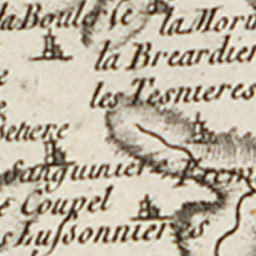 la Boulerie
la Mori
la Breardier
les Tesnieres
Betiere
Sanguiniere
Frem
Coupel
Lussonnieres